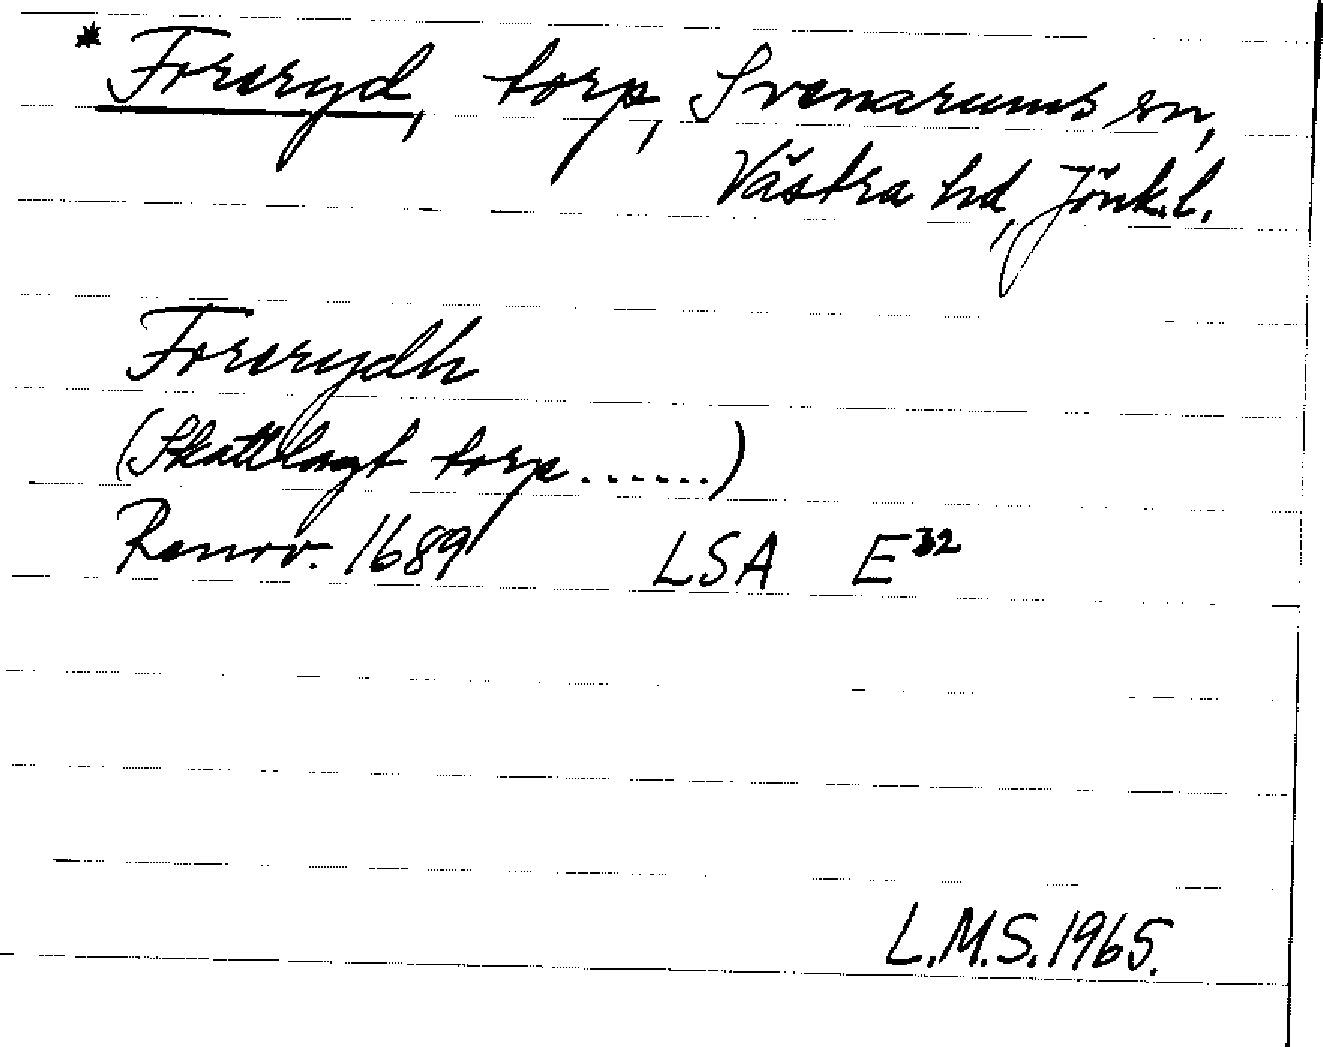 * Forsryd, torp, Svenarums sn,
Västra hd, Jönk.l.
Forsrydh
(Skattlagt torp ......)
Renov. 1689 LSA E32
L.M.S. 1965.